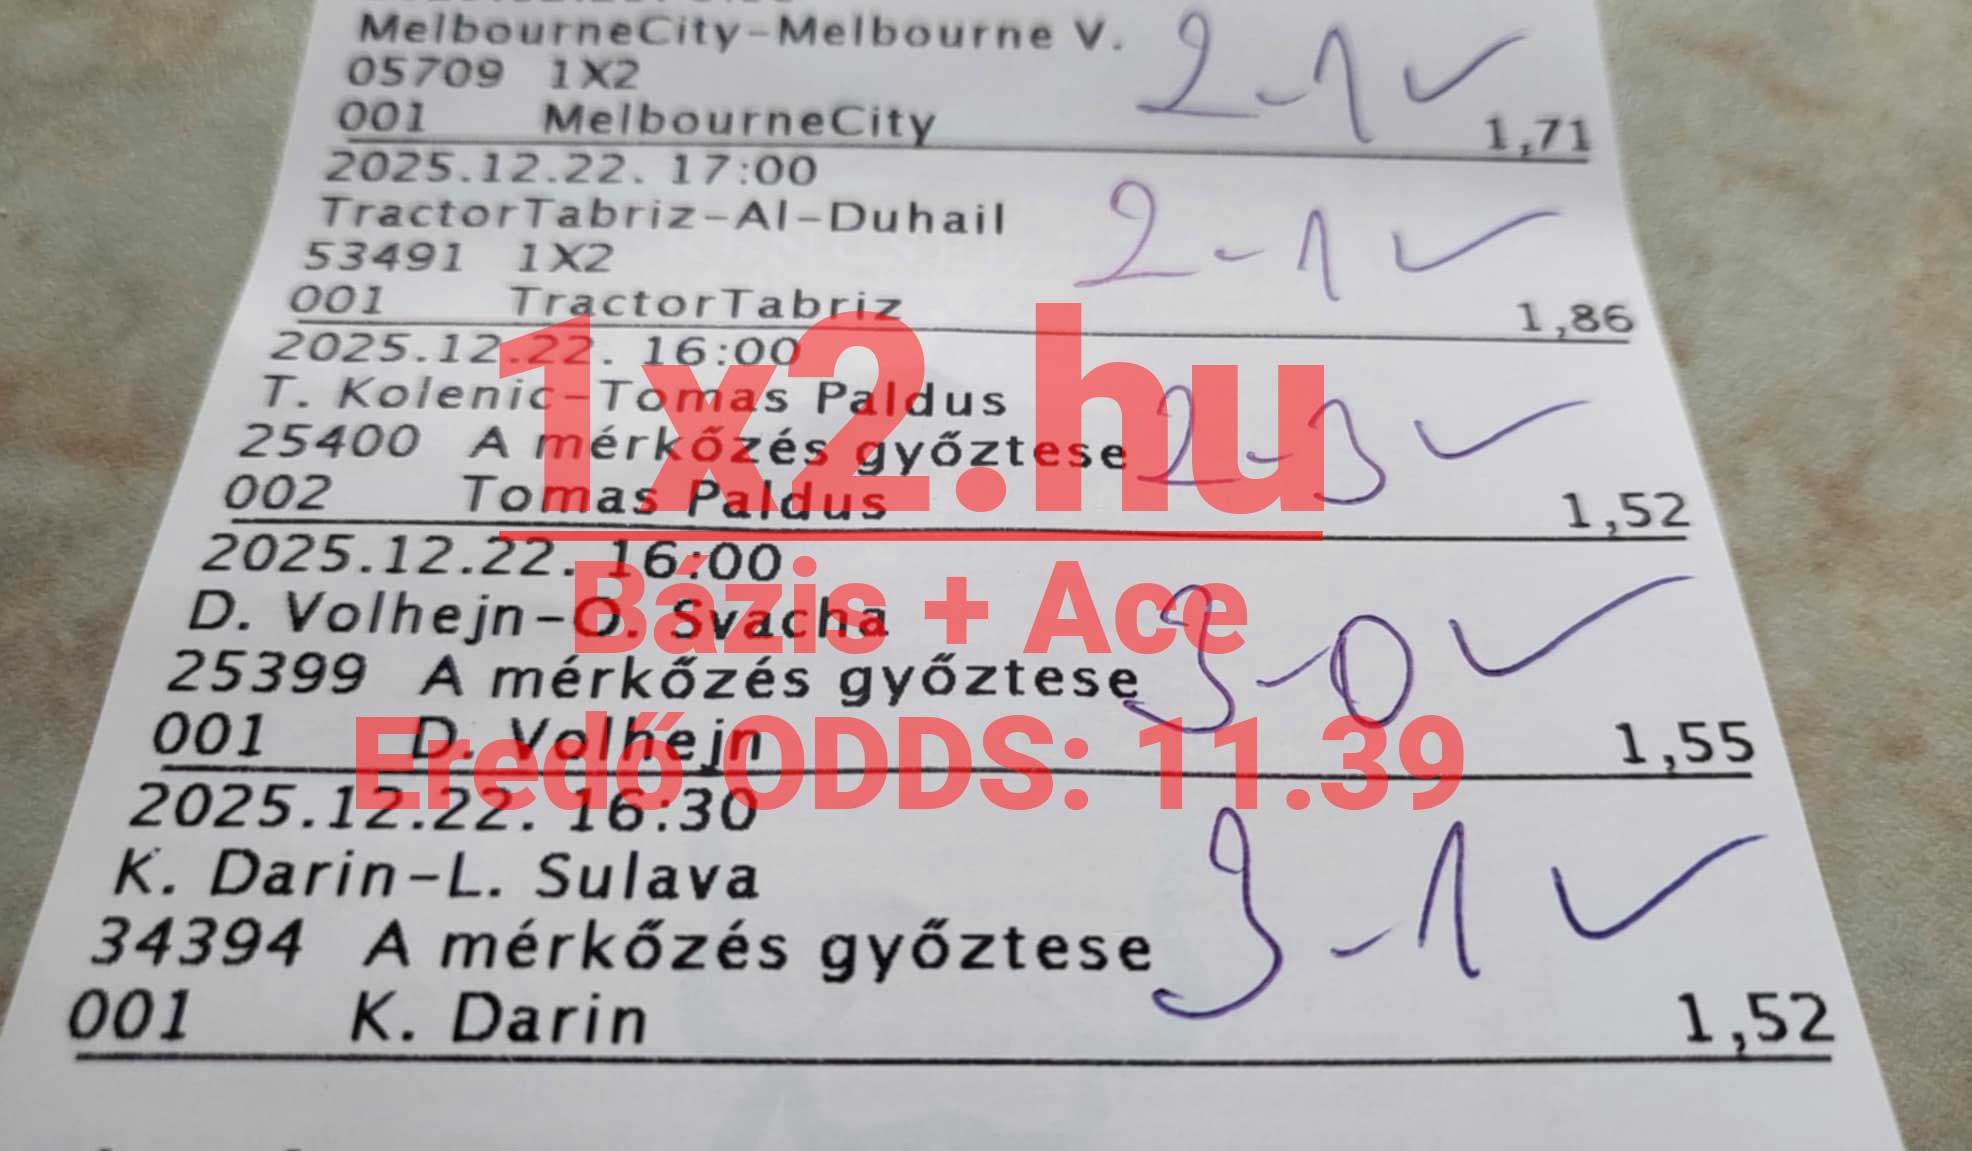 MelbourneCity-Melbourne V. 2-1 ✓
05709 1X2
001 MelbourneCity 1,71
2025.12.22. 17:00
TractorTabriz-Al-Duhail 2-1 ✓
53491 1X2
001 TractorTabriz 1,86
2025.12.22. 16:00
T. Kolenic-Tomas Paldus
25400 A mérkőzés győztese 2-3 ✓
002 Tomas Paldus 1,52
2025.12.22. 16:00
D. Volhejn-O. Svacha
25399 A mérkőzés győztese 3-0 ✓
001 D. Volhejn 1,55
2025.12.22. 16:30
K. Darin-L. Sulava
34394 A mérkőzés győztese 3-1 ✓
001 K. Darin 1,52
1x2.hu
Bázis + Ace
Eredő ODDS: 11.39